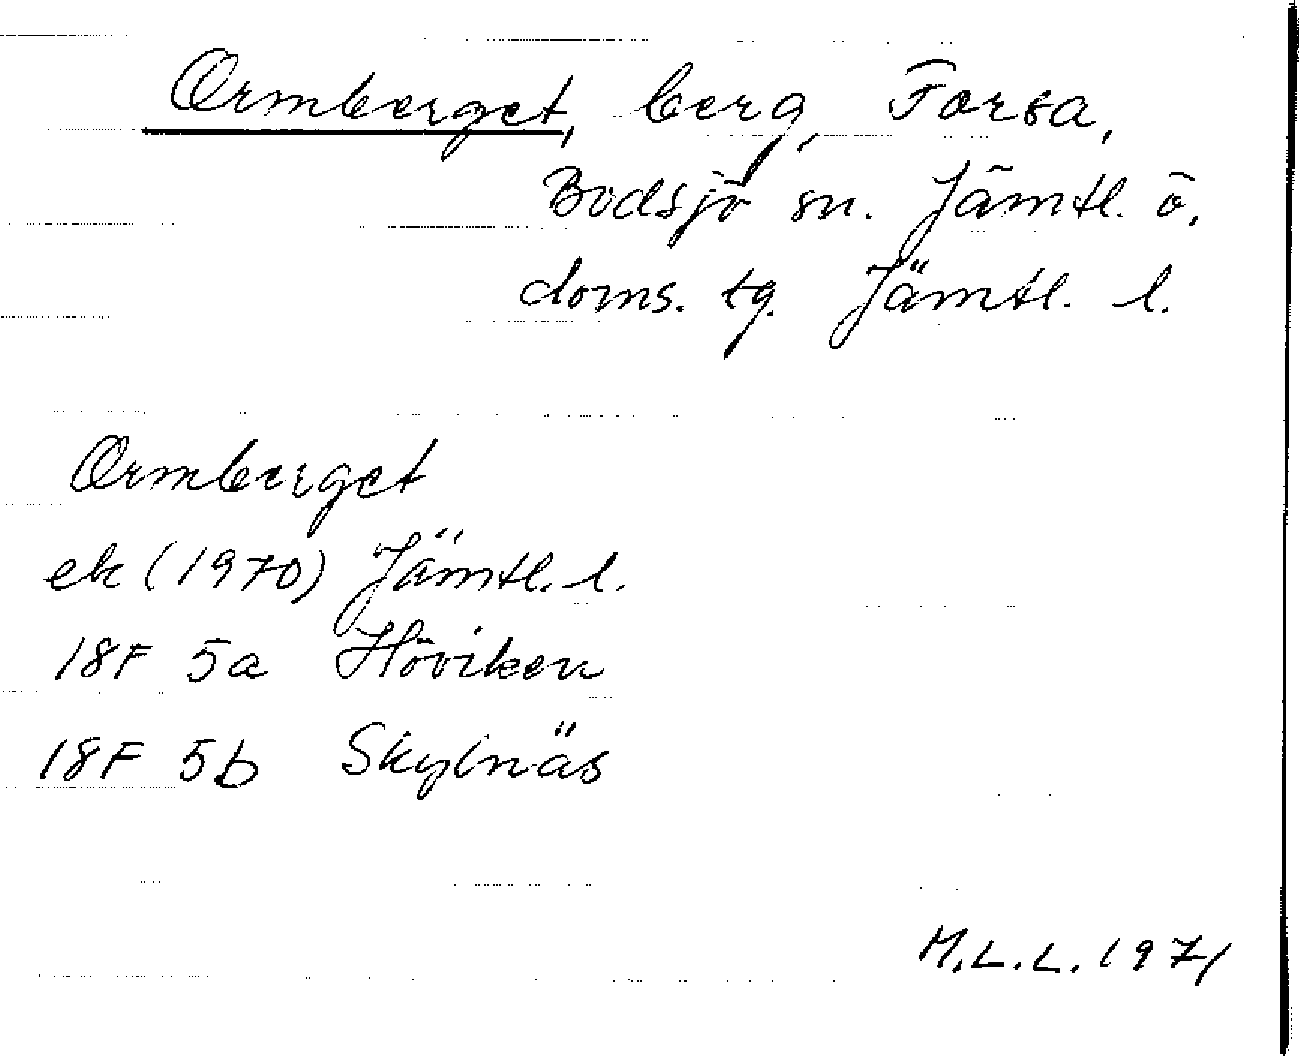 Ormberget, berg, Forsa,
Bodsjö sn. Jämtl. ö.
doms. tg. Jämtl. l.
Ormberget
ek (1970) Jämtl. l.
18F 5a Höviken
18F 5b Skylnäs
M.L.L. 1971